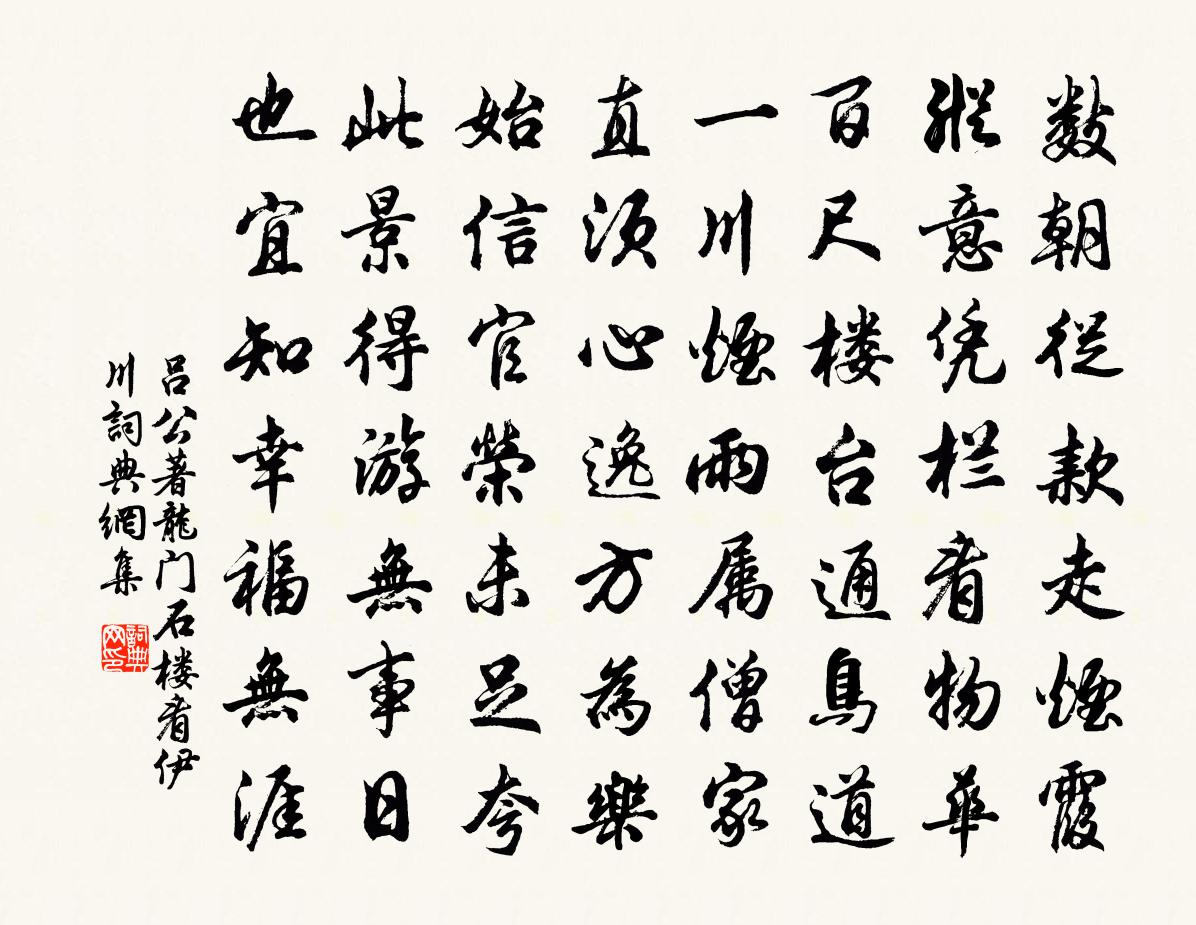 数朝従款走煙霞
縦意凭栏看物華
百尺楼台通鳥道
一川煙雨属僧家
直須心逸方為樂
始信官榮未足夸
此景得游無事日
也宜知幸福無涯
吕公著龍门石楼看伊
川詞典網集
詞典网印